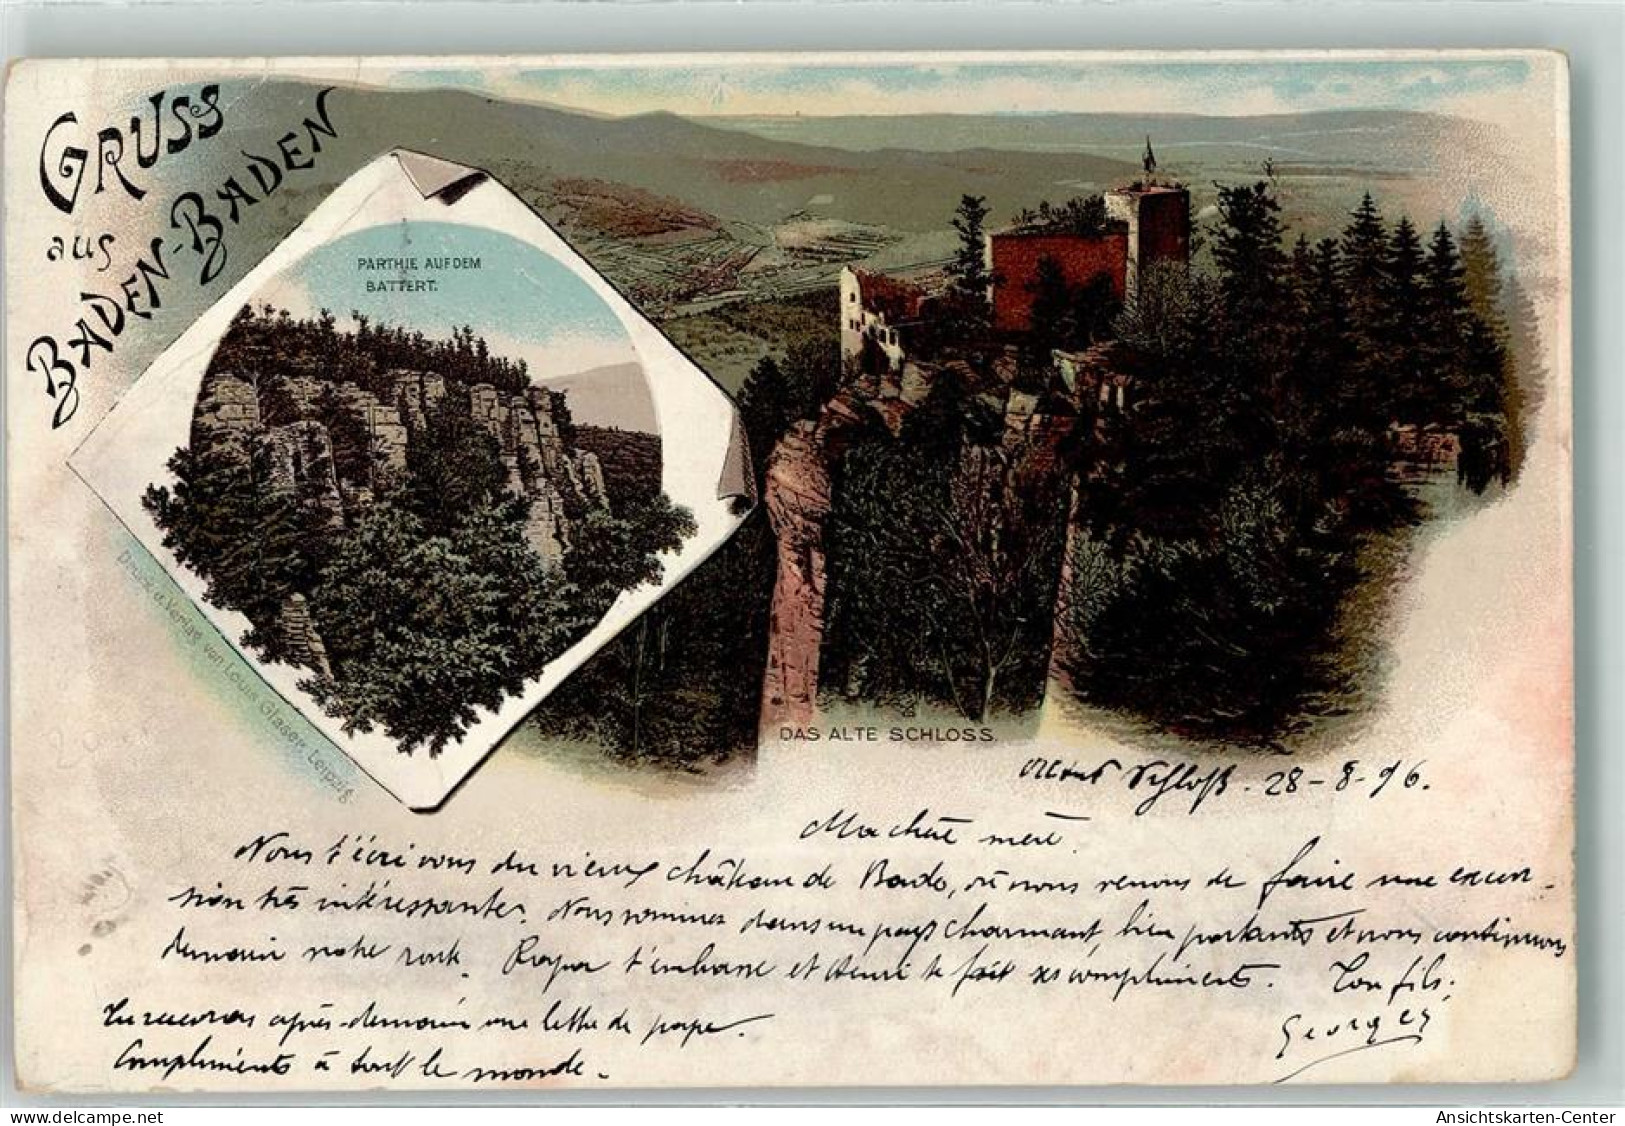 GRUSS
aus
BADEN-BADEN
PARTHIE AUF DEM
BATTERT.
Druck u. Verlag von Louis Glaser, Leipzig.
DAS ALTE SCHLOSS.
Altes Schloß. 28-8-96.
Ma chère mère.
Nous t'écrivons du vieux château de Bade, où nous venons de faire une excur-
sion très intéressante. Nous sommes dans un pays charmant, bien portants et nous continuons
demain notre route. Papa t'embrasse et Henri te fait ses compliments. Ton fils;
Georges
Tu recevras après-demain une lettre de papa.
Compliments à tout le monde.
Ansichtskarten-Center